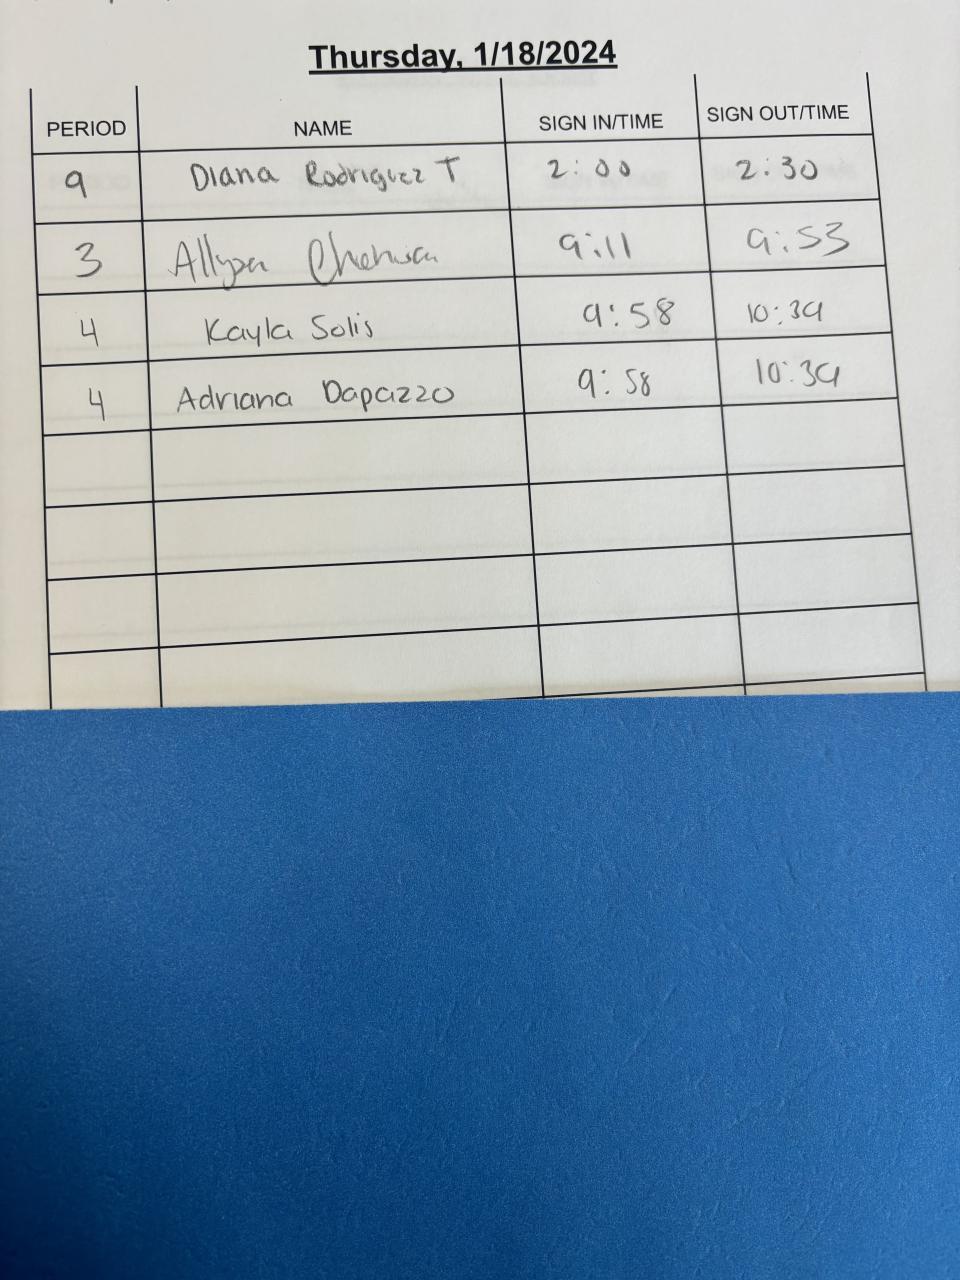 Thursday, 1/18/2024
PERIOD NAME SIGN IN/TIME SIGN OUT/TIME
9 Diana Rodriguez T 2:00 2:30
3 9:11 9:53
4 Kayla Solis 9:58 10:39
4 Adriana Dapazzo 9:58 10:39